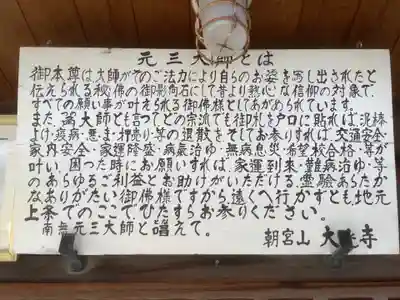 元三大師とは
御本尊は大師がそのご法力により自らのお姿を写し出されたと
伝えられる秘佛の御影向石にして昔より熱心な信仰の対象で、
すべての願い事が叶えられる御佛様としてあがめられています。
また、角大師とも言ってどの宗派でも御札を戸口に貼れば、泥棒
よけ・疫病・悪・魔・押売り等の退散をそしてお参りすれば、交通安全・
家内安全・家運隆盛・病氣治ゆ・無病息災・希望校合格・等が
叶い、困った時にお願いすれば、家運到来・難病治ゆ・等
のあらゆるご利益とお助けがいただける、霊驗あらたか
なありがたい御佛様ですから遠くへ行かずとも、地元
上条でのここで、ひたすらお参りください。
南無元三大師と唱えて。
朝宮山 大光寺